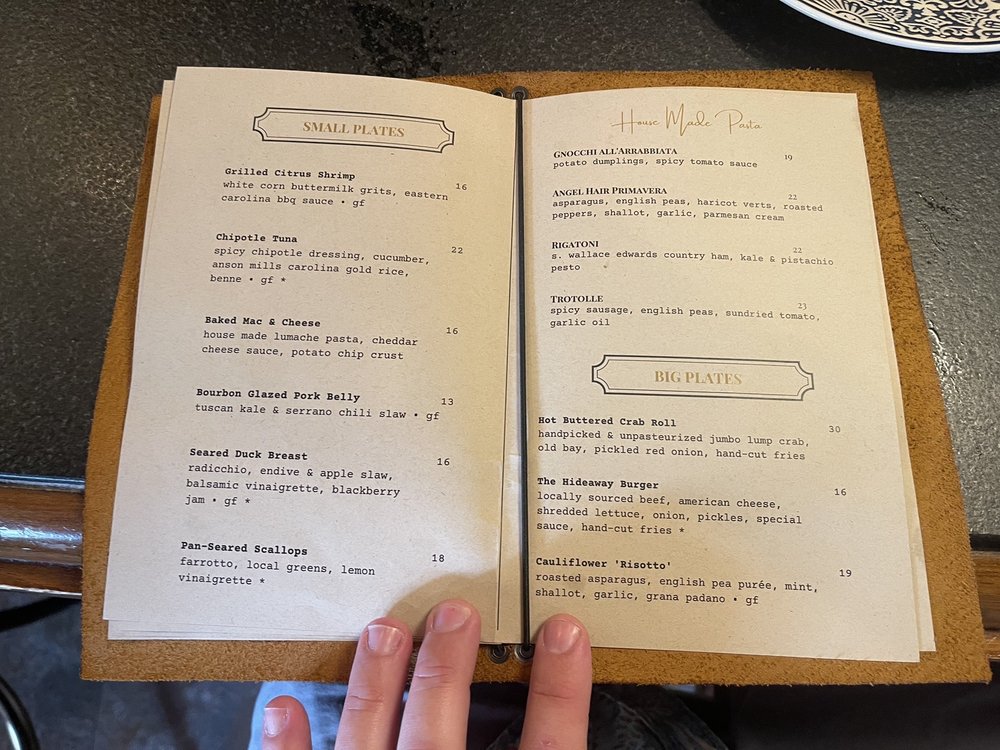 SMALL PLATES
Grilled Citrus Shrimp 16
white corn buttermilk grits, eastern
carolina bbq sauce • gf
Chipotle Tuna 22
spicy chipotle dressing, cucumber,
anson mills carolina gold rice,
benne • gf *
Baked Mac & Cheese 16
house made lumache pasta, cheddar
cheese sauce, potato chip crust
Bourbon Glazed Pork Belly 13
tuscan kale & serrano chili slaw • gf
Seared Duck Breast 16
radicchio, endive & apple slaw,
balsamic vinaigrette, blackberry
jam • gf *
Pan-Seared Scallops 18
farrotto, local greens, lemon
vinaigrette *
House Made Pasta
GNOCCHI ALL'ARRABBIATA 19
potato dumplings, spicy tomato sauce
ANGEL HAIR PRIMAVERA 22
asparagus, english peas, haricot verts, roasted
peppers, shallot, garlic, parmesan cream
RIGATONI 22
s. wallace edwards country ham, kale & pistachio
pesto
TROTOLLE 23
spicy sausage, english peas, sundried tomato,
garlic oil
BIG PLATES
Hot Buttered Crab Roll 30
handpicked & unpasteurized jumbo lump crab,
old bay, pickled red onion, hand-cut fries
The Hideaway Burger 16
locally sourced beef, american cheese,
shredded lettuce, onion, pickles, special
sauce, hand-cut fries *
Cauliflower 'Risotto' 19
roasted asparagus, english pea purée, mint,
shallot, garlic, grana padano • gf